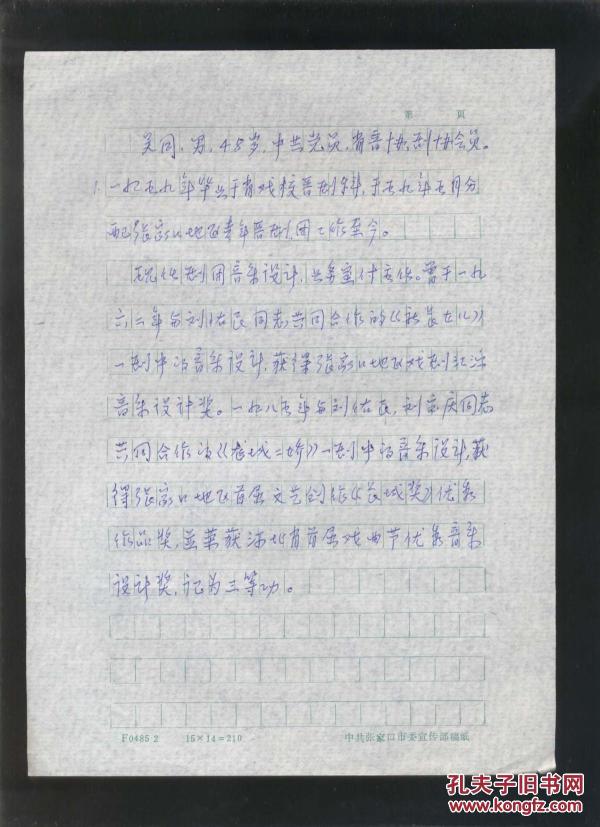 第　页
关同，男，48岁，中共党员，省音协、剧协会员。
一九五九年毕业于省戏校晋剧科，于五九年五月分
配张家口地区青年晋剧团工作至今。
现任剧团音乐设计，业务室付主任。曾于一九
六二年与刘佑民同志共同合作的《龙女儿》
一剧中的音乐设计，获得张家口地区戏剧汇演
音乐设计奖。一九八五年与刘佑民，刘宝庆同志
共同合作的《老城二娇》一剧中的音乐设计，获
得张家口地区首届文艺创作《长城奖》优秀
作品奖，并荣获河北省首届戏曲节优秀音乐
设计奖，记为三等功。
F0485·2　15×14=210　中共张家口市委宣传部稿纸
孔夫子旧书网
www.kongfz.com